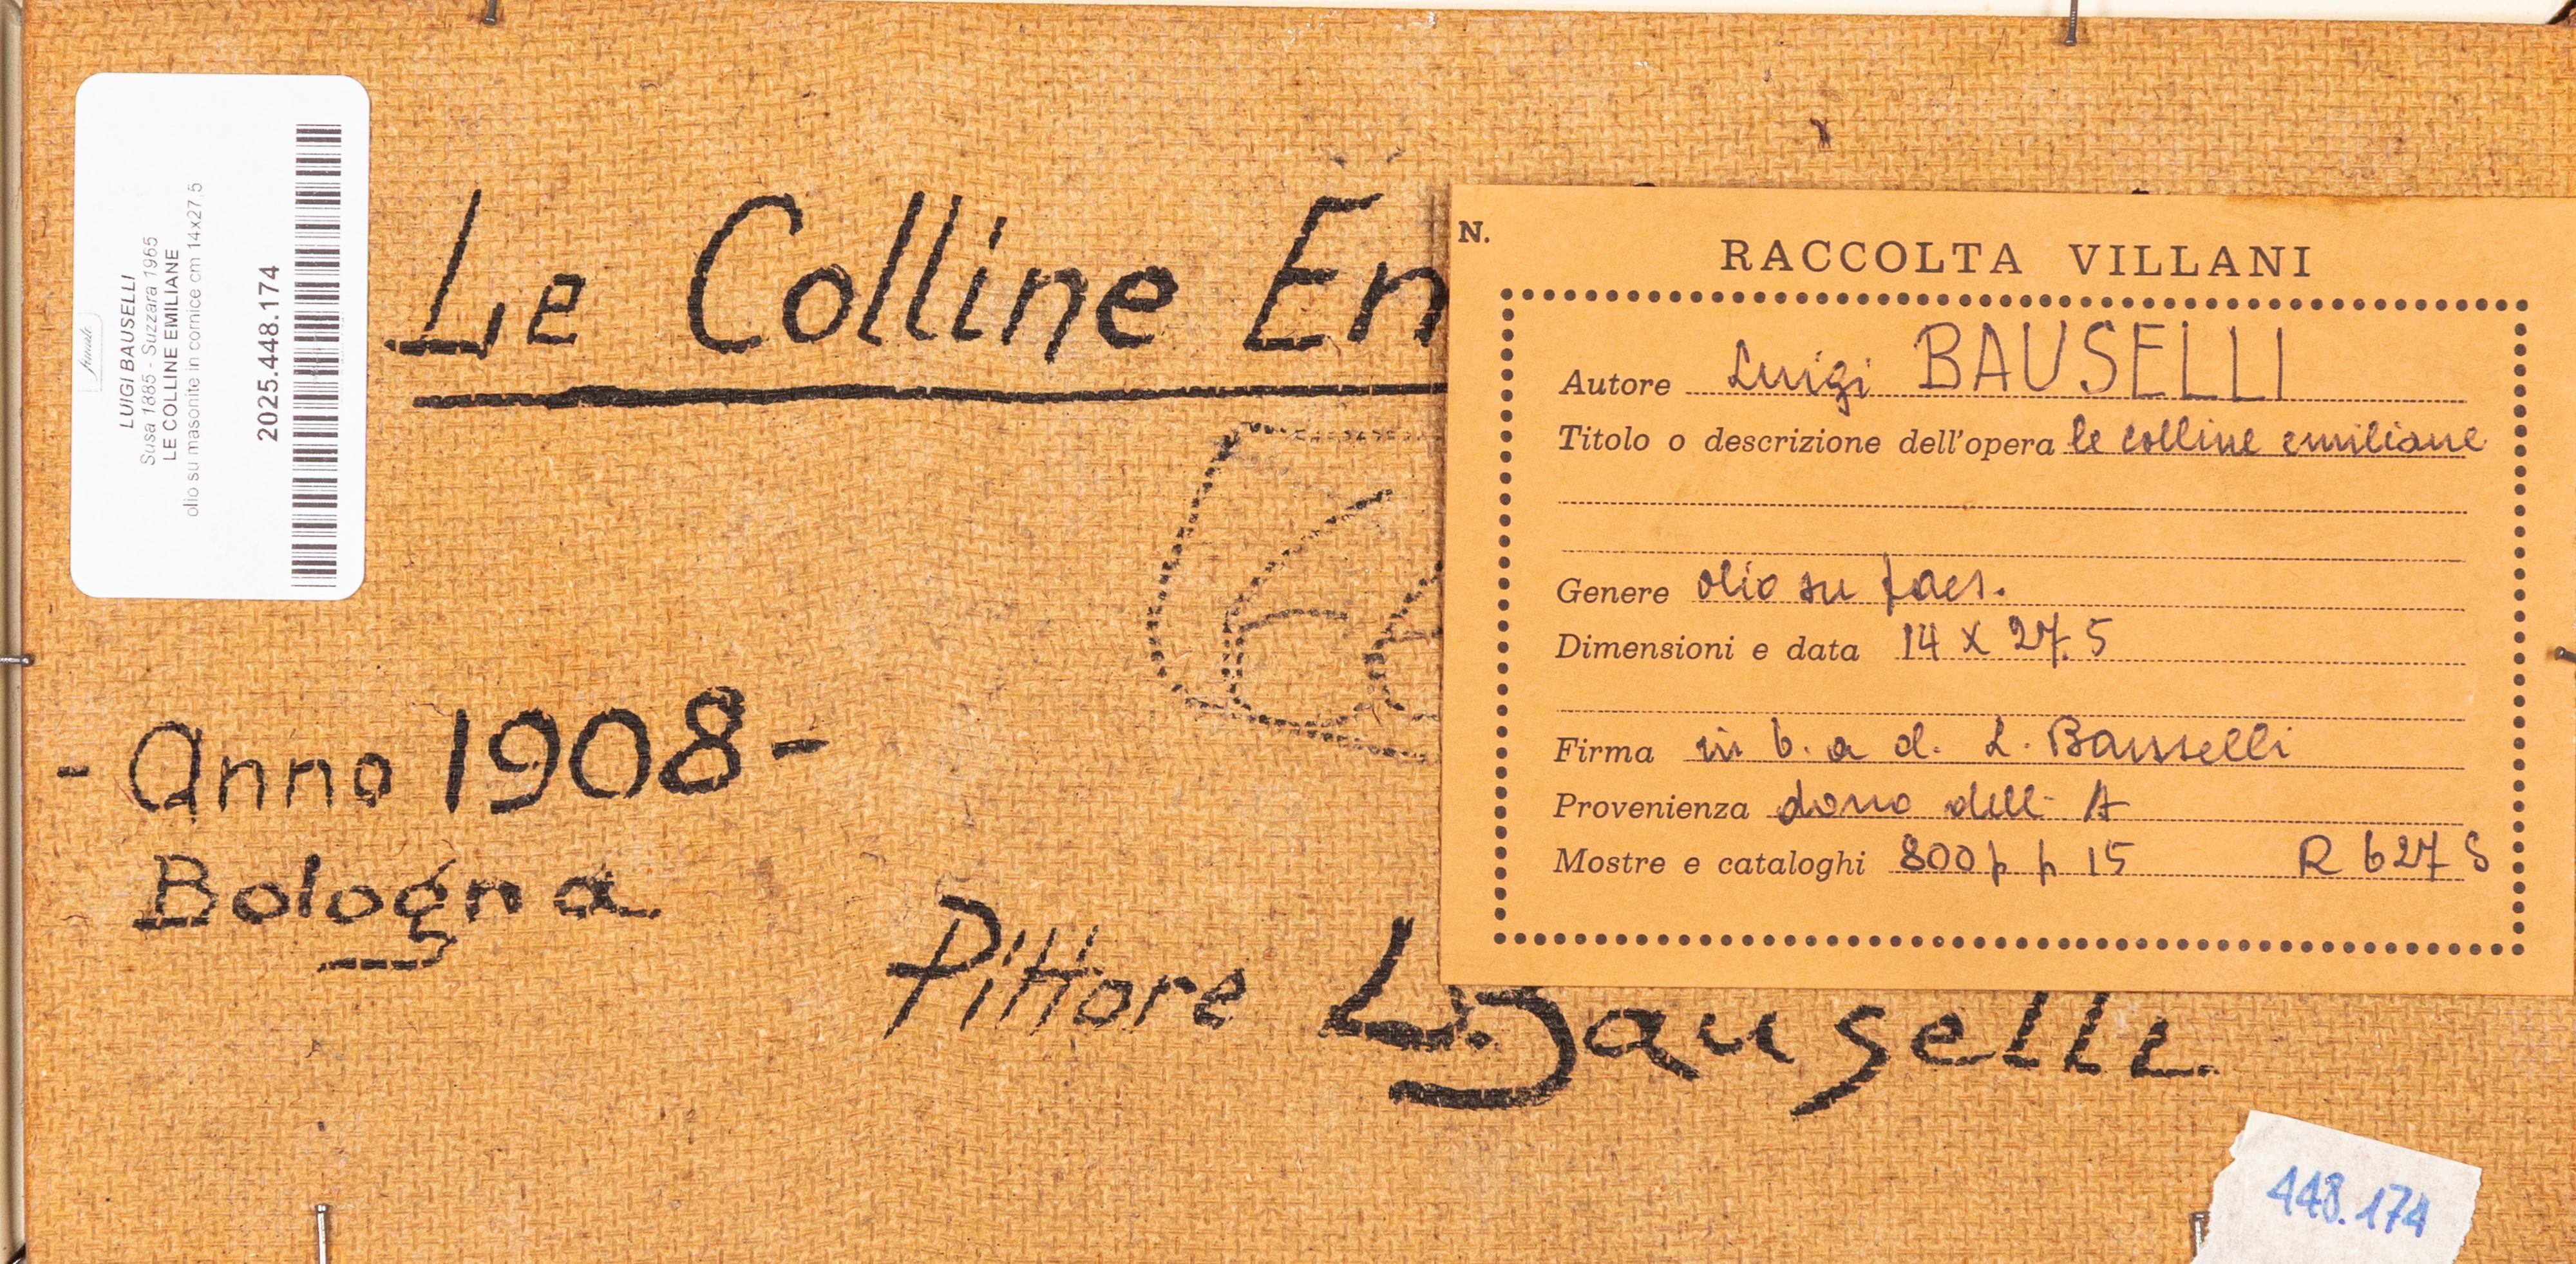 LUIGI BAUSELLI
Susa 1885 - Suzzara 1965
LE COLLINE EMILIANE
olio su masonite in cornice cm 14x27,5
2025.448.174
Le Colline Em
- Anno 1908 -
Bologna
Pittore L. Bauselli
N.
RACCOLTA VILLANI
Autore Luigi BAUSELLI
Titolo o descrizione dell'opera le colline emiliane
Genere olio su faes.
Dimensioni e data 14 x 27.5
Firma in b. a d. L. Bauselli
Provenienza dono dell' A
Mostre e cataloghi 800 p p 15 R 627 S
448.174